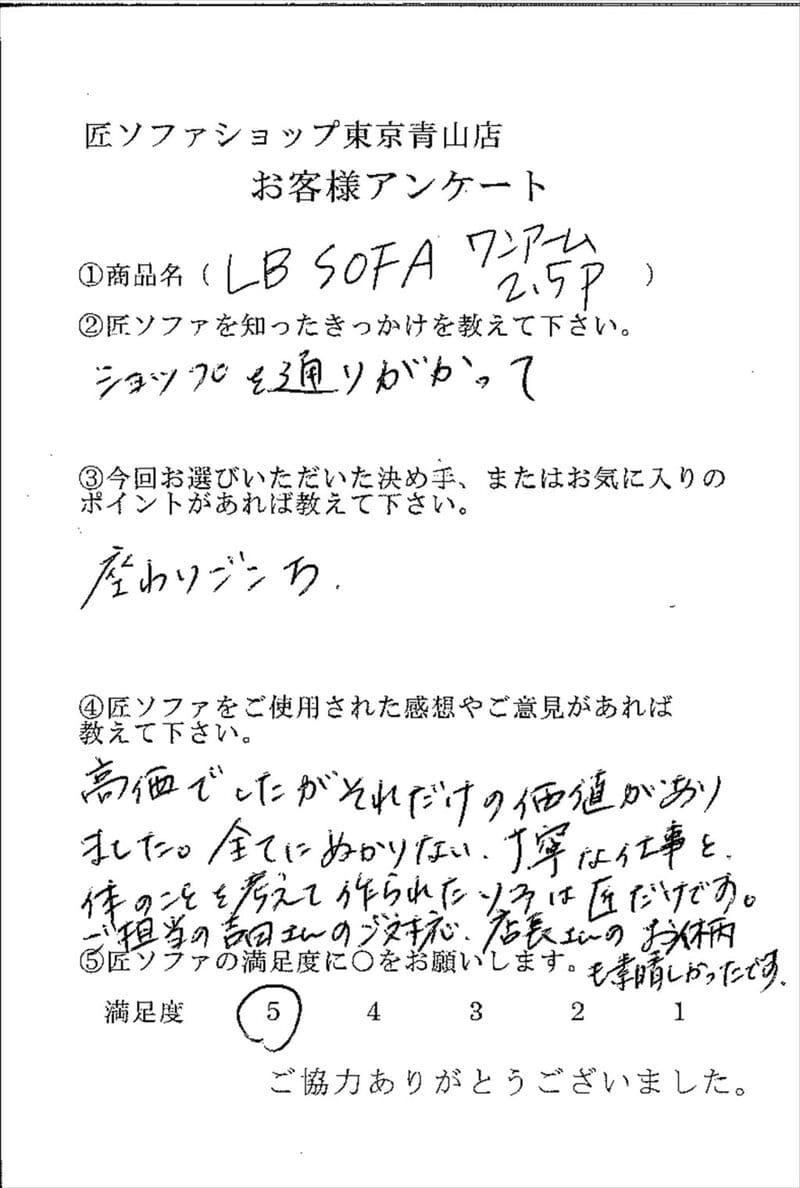 匠ソファショップ東京青山店
お客様アンケート
①商品名（ LB SOFA ワンアーム 2.5P ）
②匠ソファを知ったきっかけを教えて下さい。
ショップを通りがかって
③今回お選びいただいた決め手、またはお気に入りの
ポイントがあれば教えて下さい。
座わりゴンち.
④匠ソファをご使用された感想やご意見があれば
教えて下さい。
高価でしたがそれだけの価値があり
ました。全てにぬかりない、丁寧な仕事と、
体のことを考えて作られたソファは匠だけです。
ご担当の吉田さんのご対応、店長さんのお人柄
も素晴しかったです.
⑤匠ソファの満足度に○をお願いします。
満足度 5 4 3 2 1
ご協力ありがとうございました。